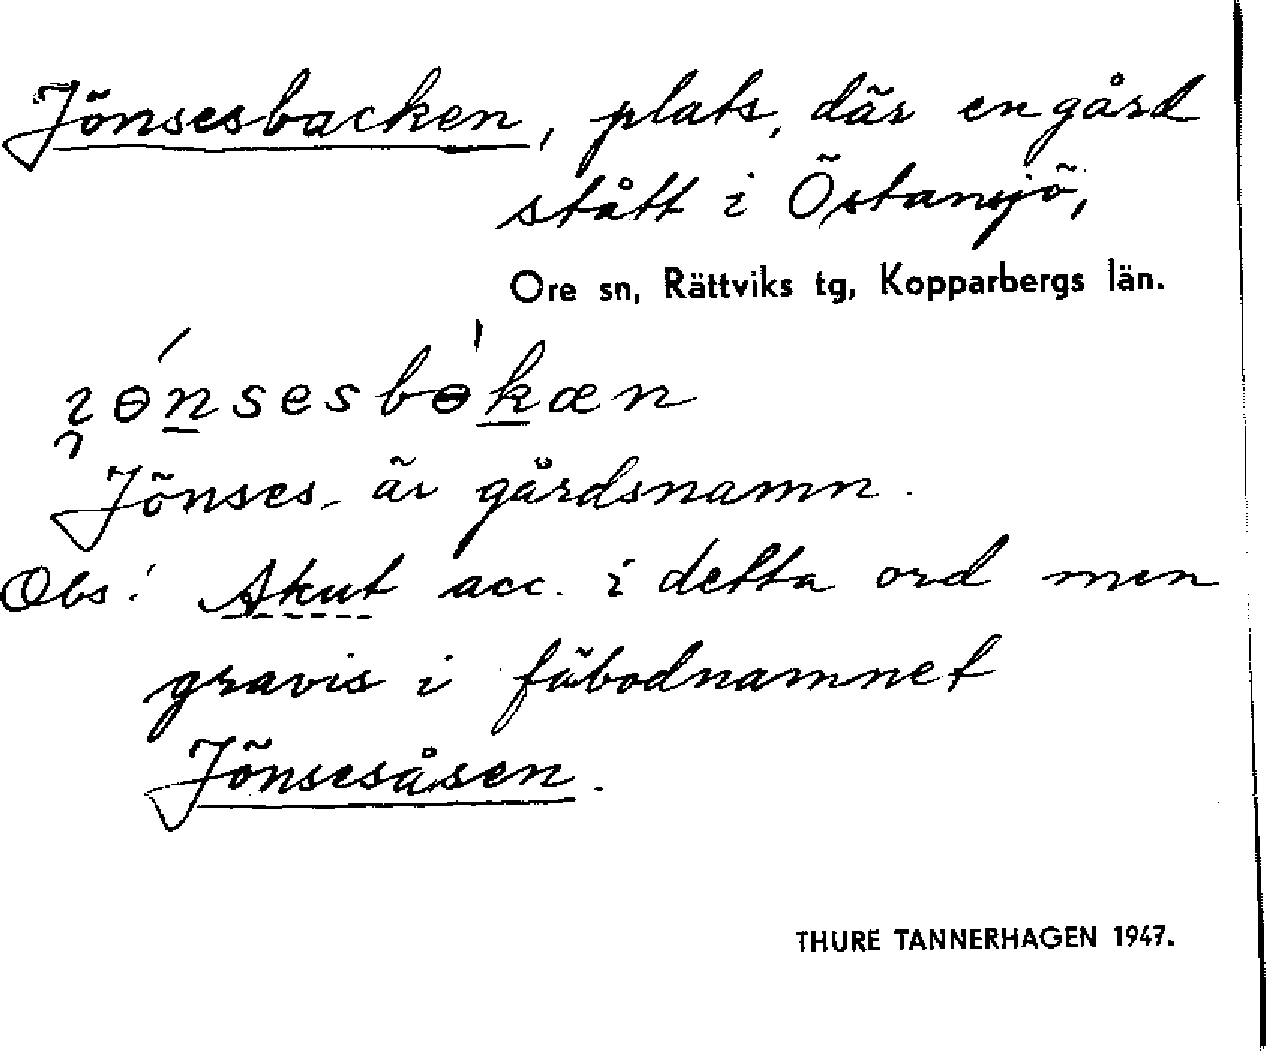 Jönsesbacken, plats, där en gård
stått i Östansjö,
Ore sn, Rättviks tg, Kopparbergs län.
Jönses- är gårdsnamn.
Obs! Akut acc. i detta ord men
gravis i fäbodnamnet
Jönsesåsen.
THURE TANNERHAGEN 1947.